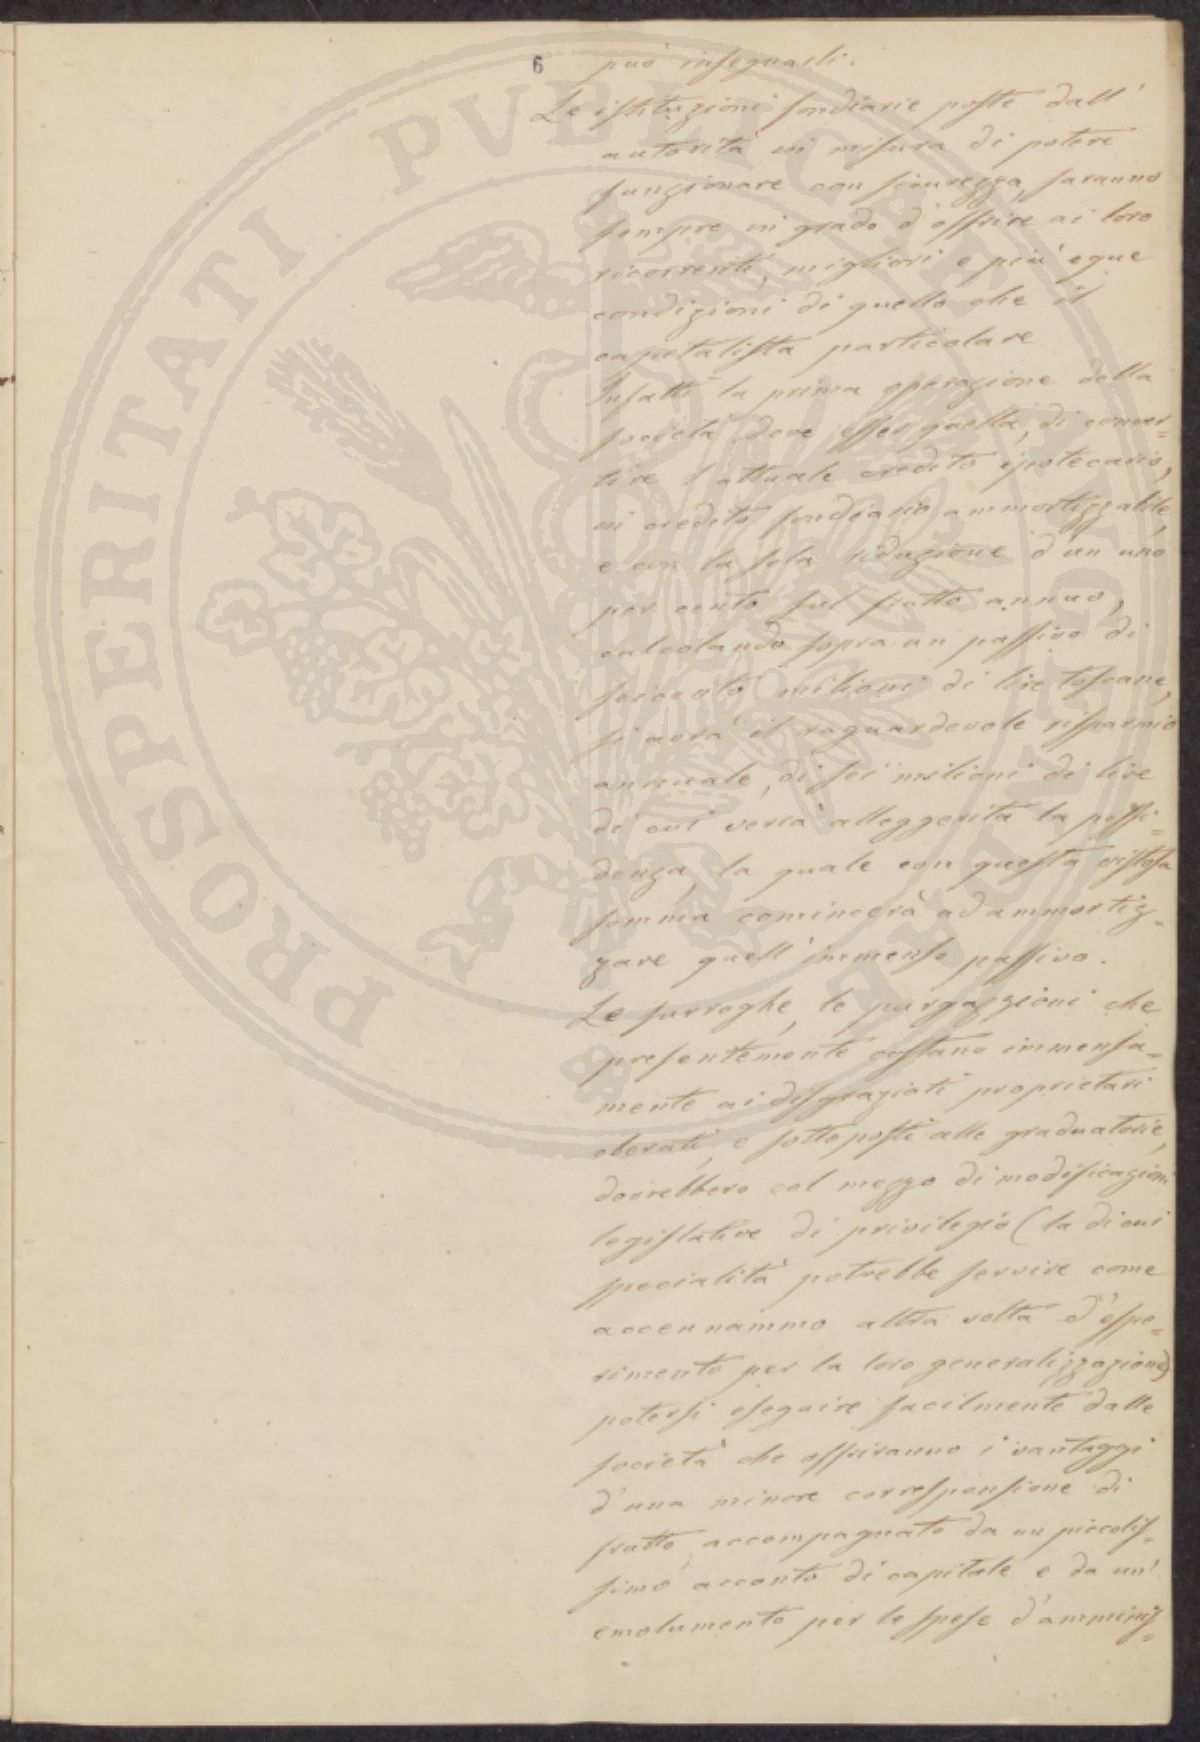 6
può insegnarli.
Le istituzioni fondiarie poste dall'
autorità in misura di potere
funzionare con sicurezza, saranno
sempre in grado d'offrire ai loro
ricorrenti, migliori e più eque
condizioni di quello che il
capitalista particolare
Infatti la prima operazione della
società deve esser quella, di conver=
tire l'attuale credito ipotecario,
in credito fondiario ammortizzabile,
e con la sola riduzione d'un uno
per cento sul frutto annuo,
calcolando sopra un passivo di
seicento milioni di lire toscane,
si avrà il raguardevole risparmio
annuale, di sei milioni di lire
di cui verrà alleggerita la possi=
denza, la quale con questa vistosa
somma comincerà ad ammortiz=
zare quell'immenso passivo.
Le surroghe, le purgazzioni che
presentemente costano immensa=
mente ai disgraziati proprietari
oberati, e sottoposti alle graduatorie,
dovrebbero col mezzo di modificazioni
legislative di privilegio (la di cui
specialità potrebbe servire come
accennammo altra volta d'espe=
rimento per la loro generalizzazione)
potersi eseguire facilmente dalle
società che offriranno i vantaggi
d'una minore corresponsione di
frutto, accompagnato da un piccolis=
simo acconto di capitale e da un'
emolumento per le spese d'amminis=
PROSPERITATI PVBLICAE AVGENDAE